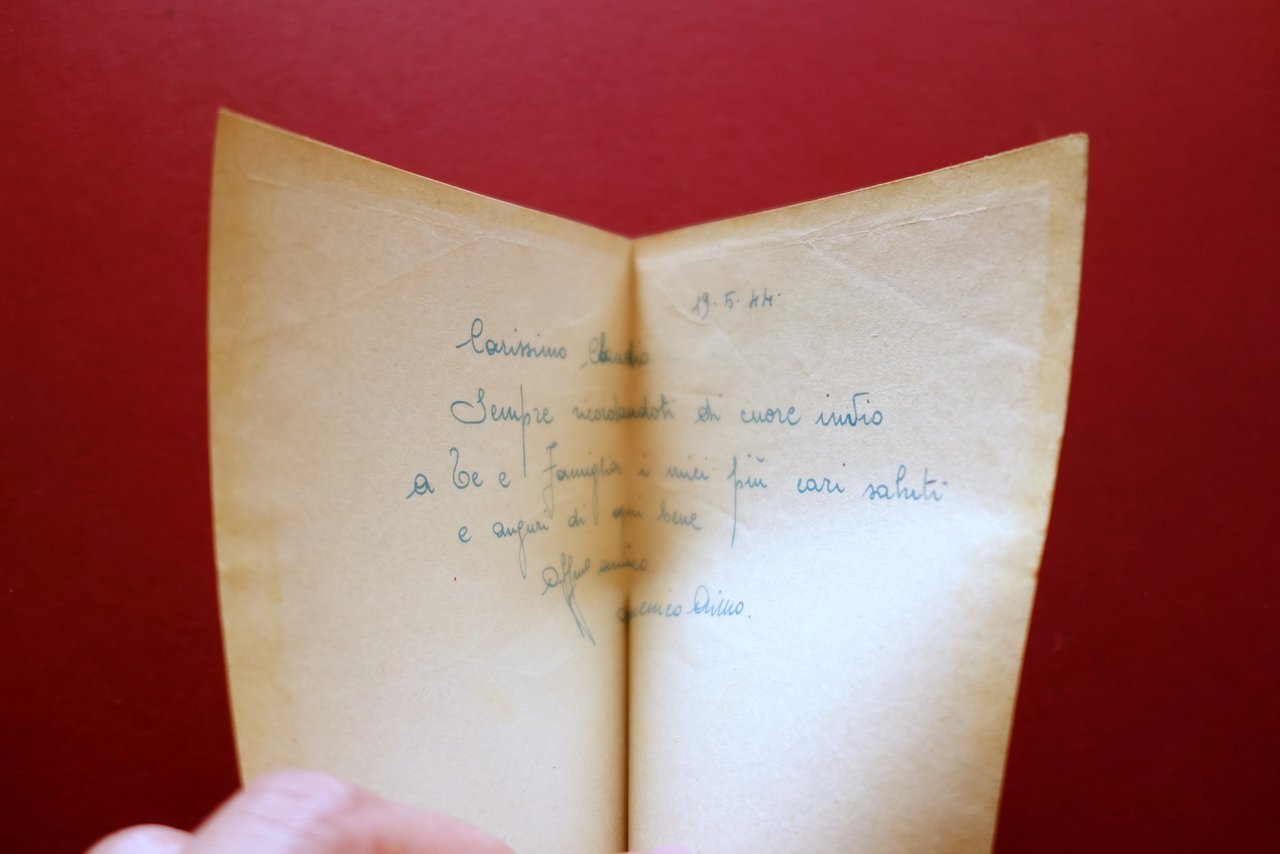 19.5.44.
Carissimo Claudio
Sempre ricordandoti di cuore invio
a Te e Famiglia i miei più cari saluti
e auguri di ogni bene
Aff.mo amico